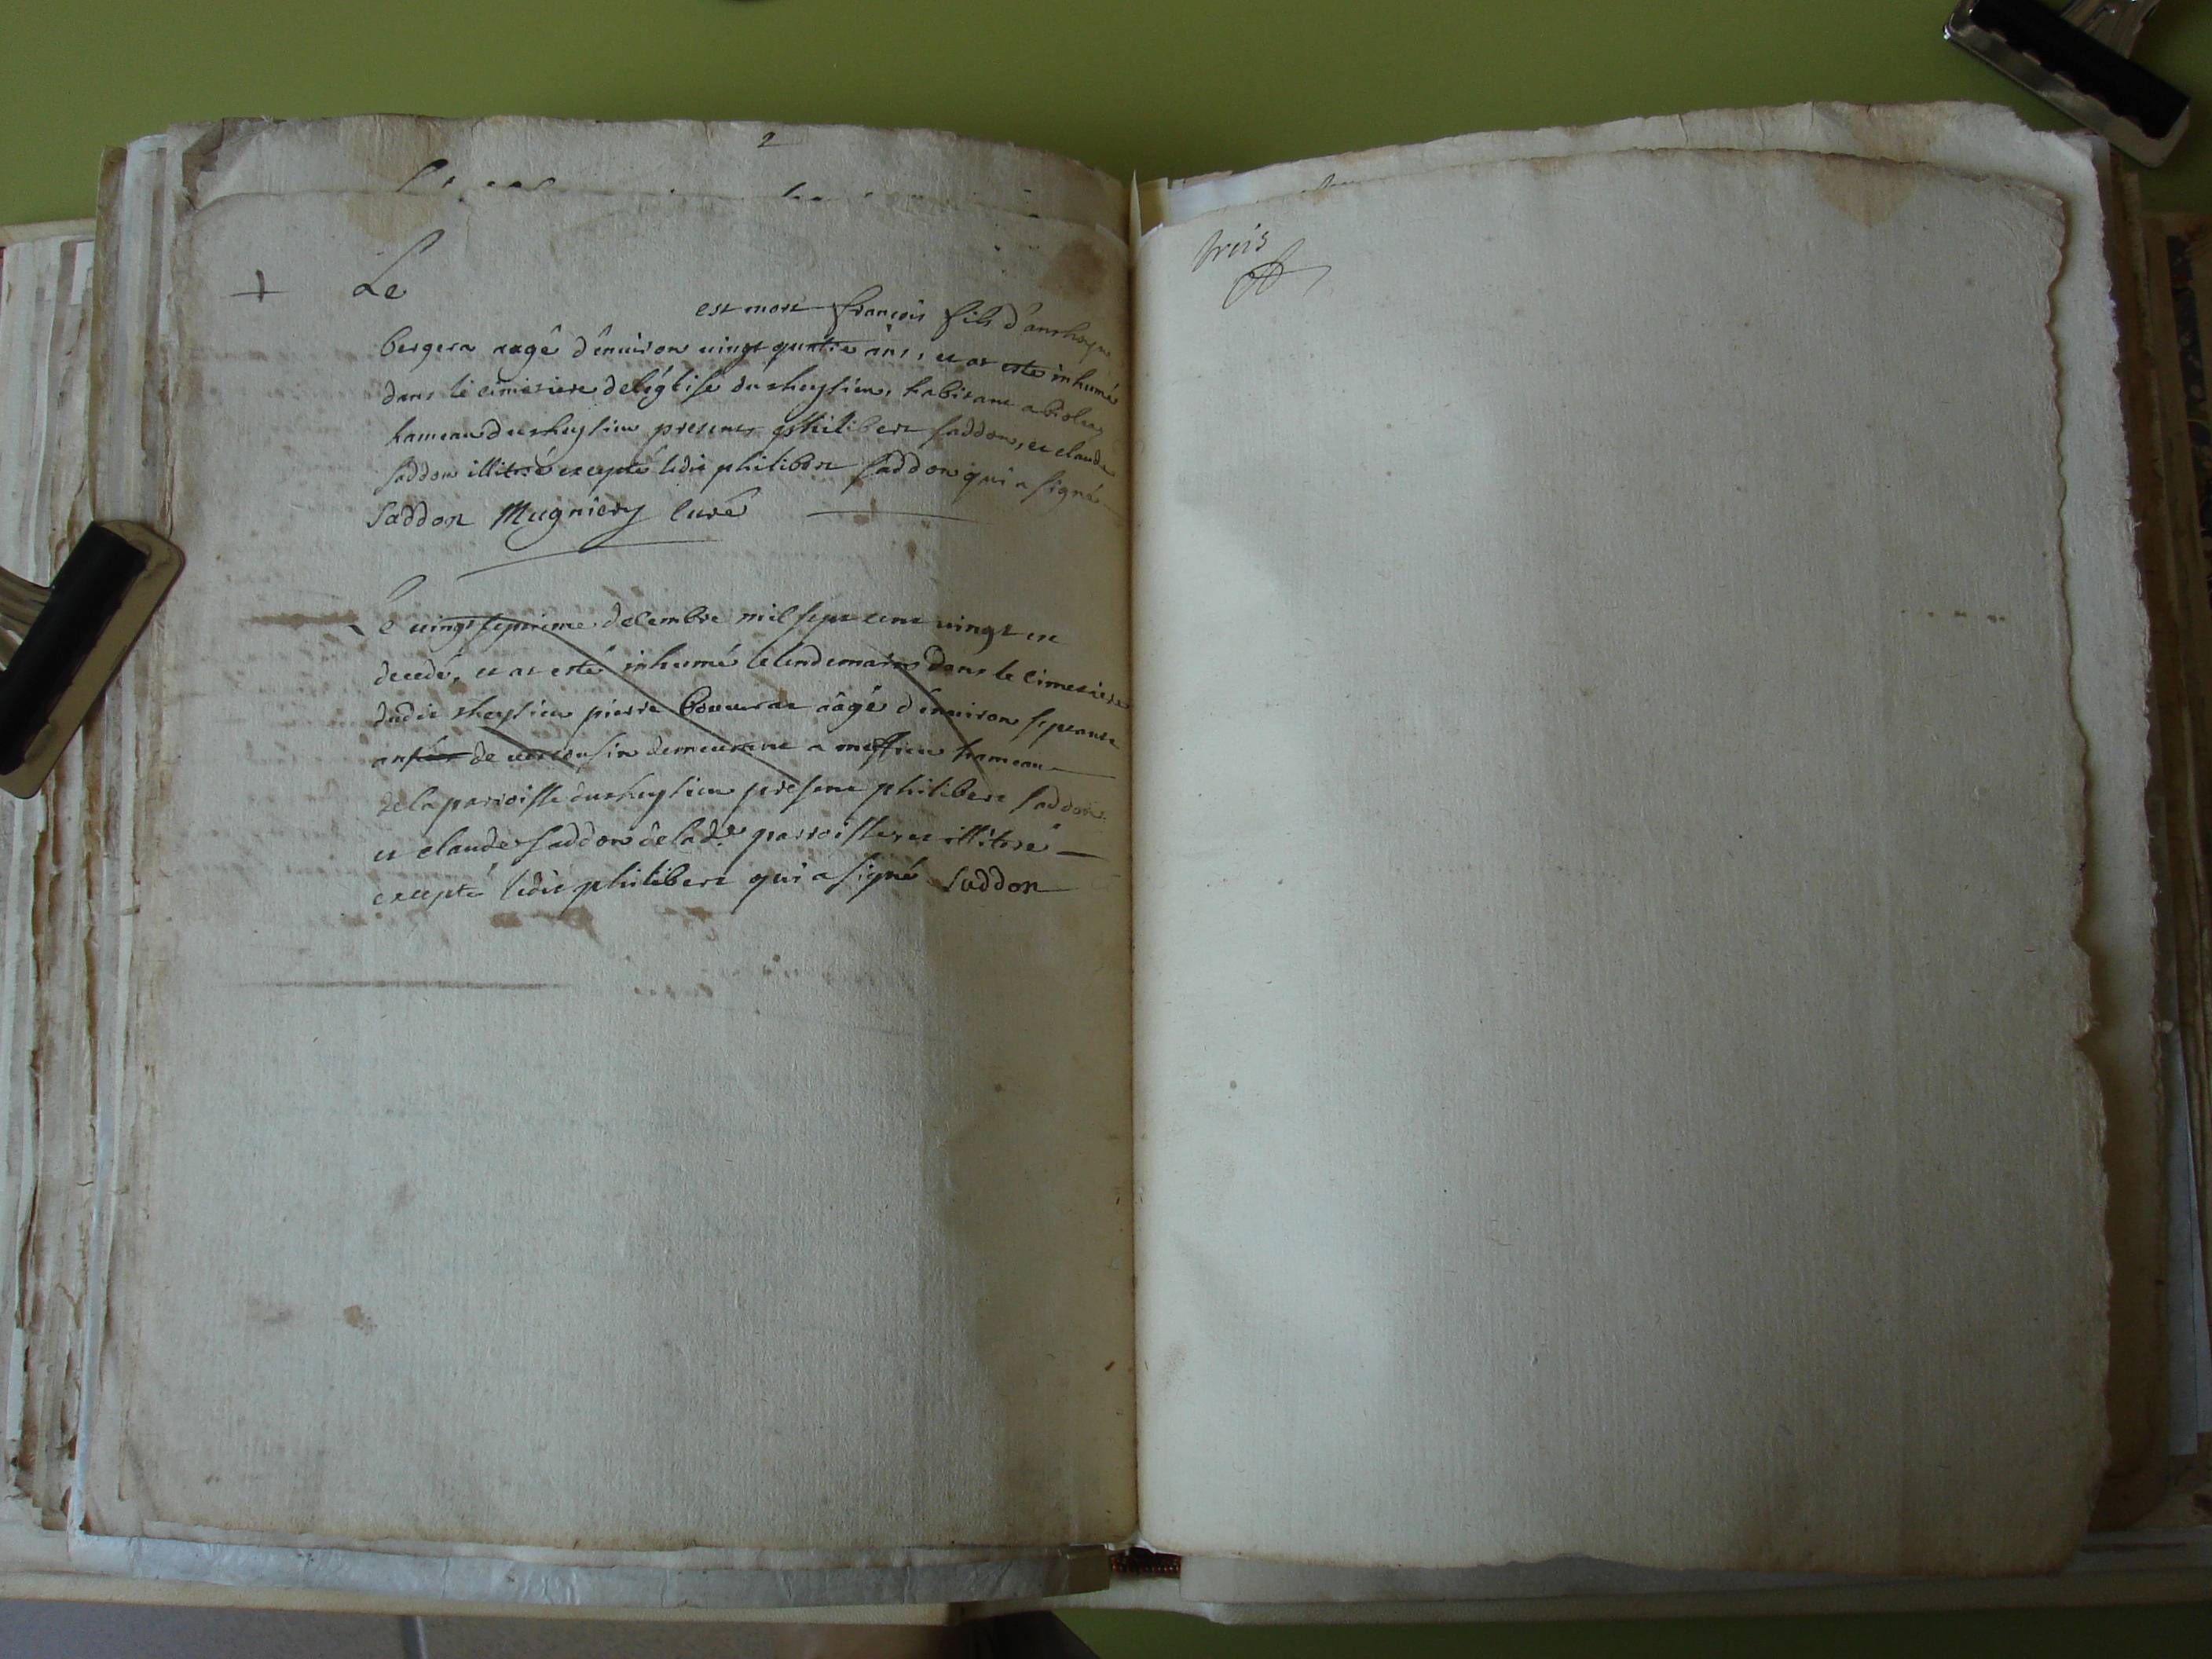 2
+ Le
est mort françois fils d'anthoyne
bergera aagé d'enuiron uingt quatre ans, et at esté inhumé
dans le cimetiere de léglise du cheylieu, habitant a bioleay
hameau du cheylieu presents philibert saddon, et claude
saddon illitré excepté ledit philibert saddon qui a signé
Saddon Mugniery Curé
Le uingt septieme decembre mil sept cent uingt un
decedé, et at esté inhumé le lendemain dans le cimetiere
dudit cheylieu pierre aâgé d'enuiron septante
ans de demeurant a meffieu hameau
de la parroisse du cheylieu présent philibert saddon
et claude saddon de lad.e parroisse et illitré
excepté ledit philibert qui a signé Saddon
trois